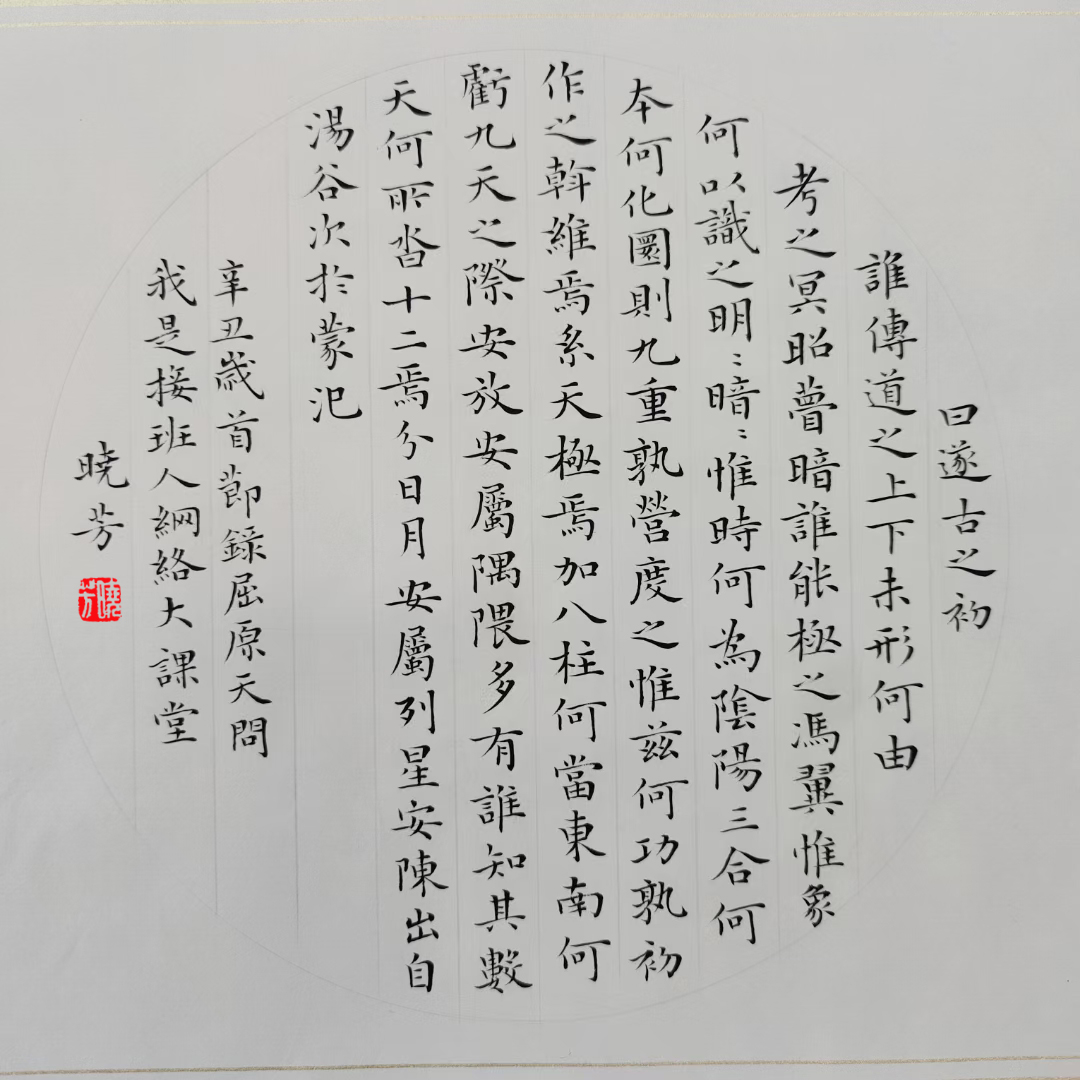 曰遂古之初
誰傳道之上下未形何由
考之冥昭瞢暗誰能極之馮翼惟象
何以識之明〻暗〻惟時何為陰陽三合何
本何化圜則九重孰營度之惟茲何功孰初
作之斡維焉系天極焉加八柱何當東南何
虧九天之際安放安屬隅隈多有誰知其數
天何所沓十二焉分日月安屬列星安陳出自
湯谷次於蒙汜
辛丑歲首節錄屈原天問
我是接班人網絡大課堂
曉芳
曉芳